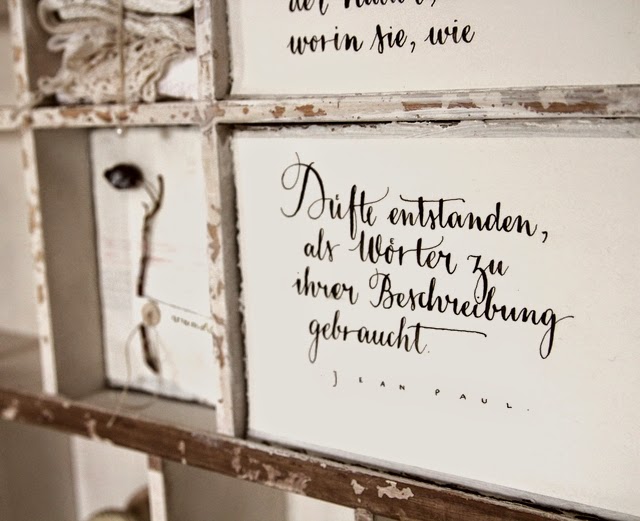 worin sie, wie
Düfte entstanden,
als Wörter zu
ihrer Beschreibung
gebraucht.
JEAN PAUL.